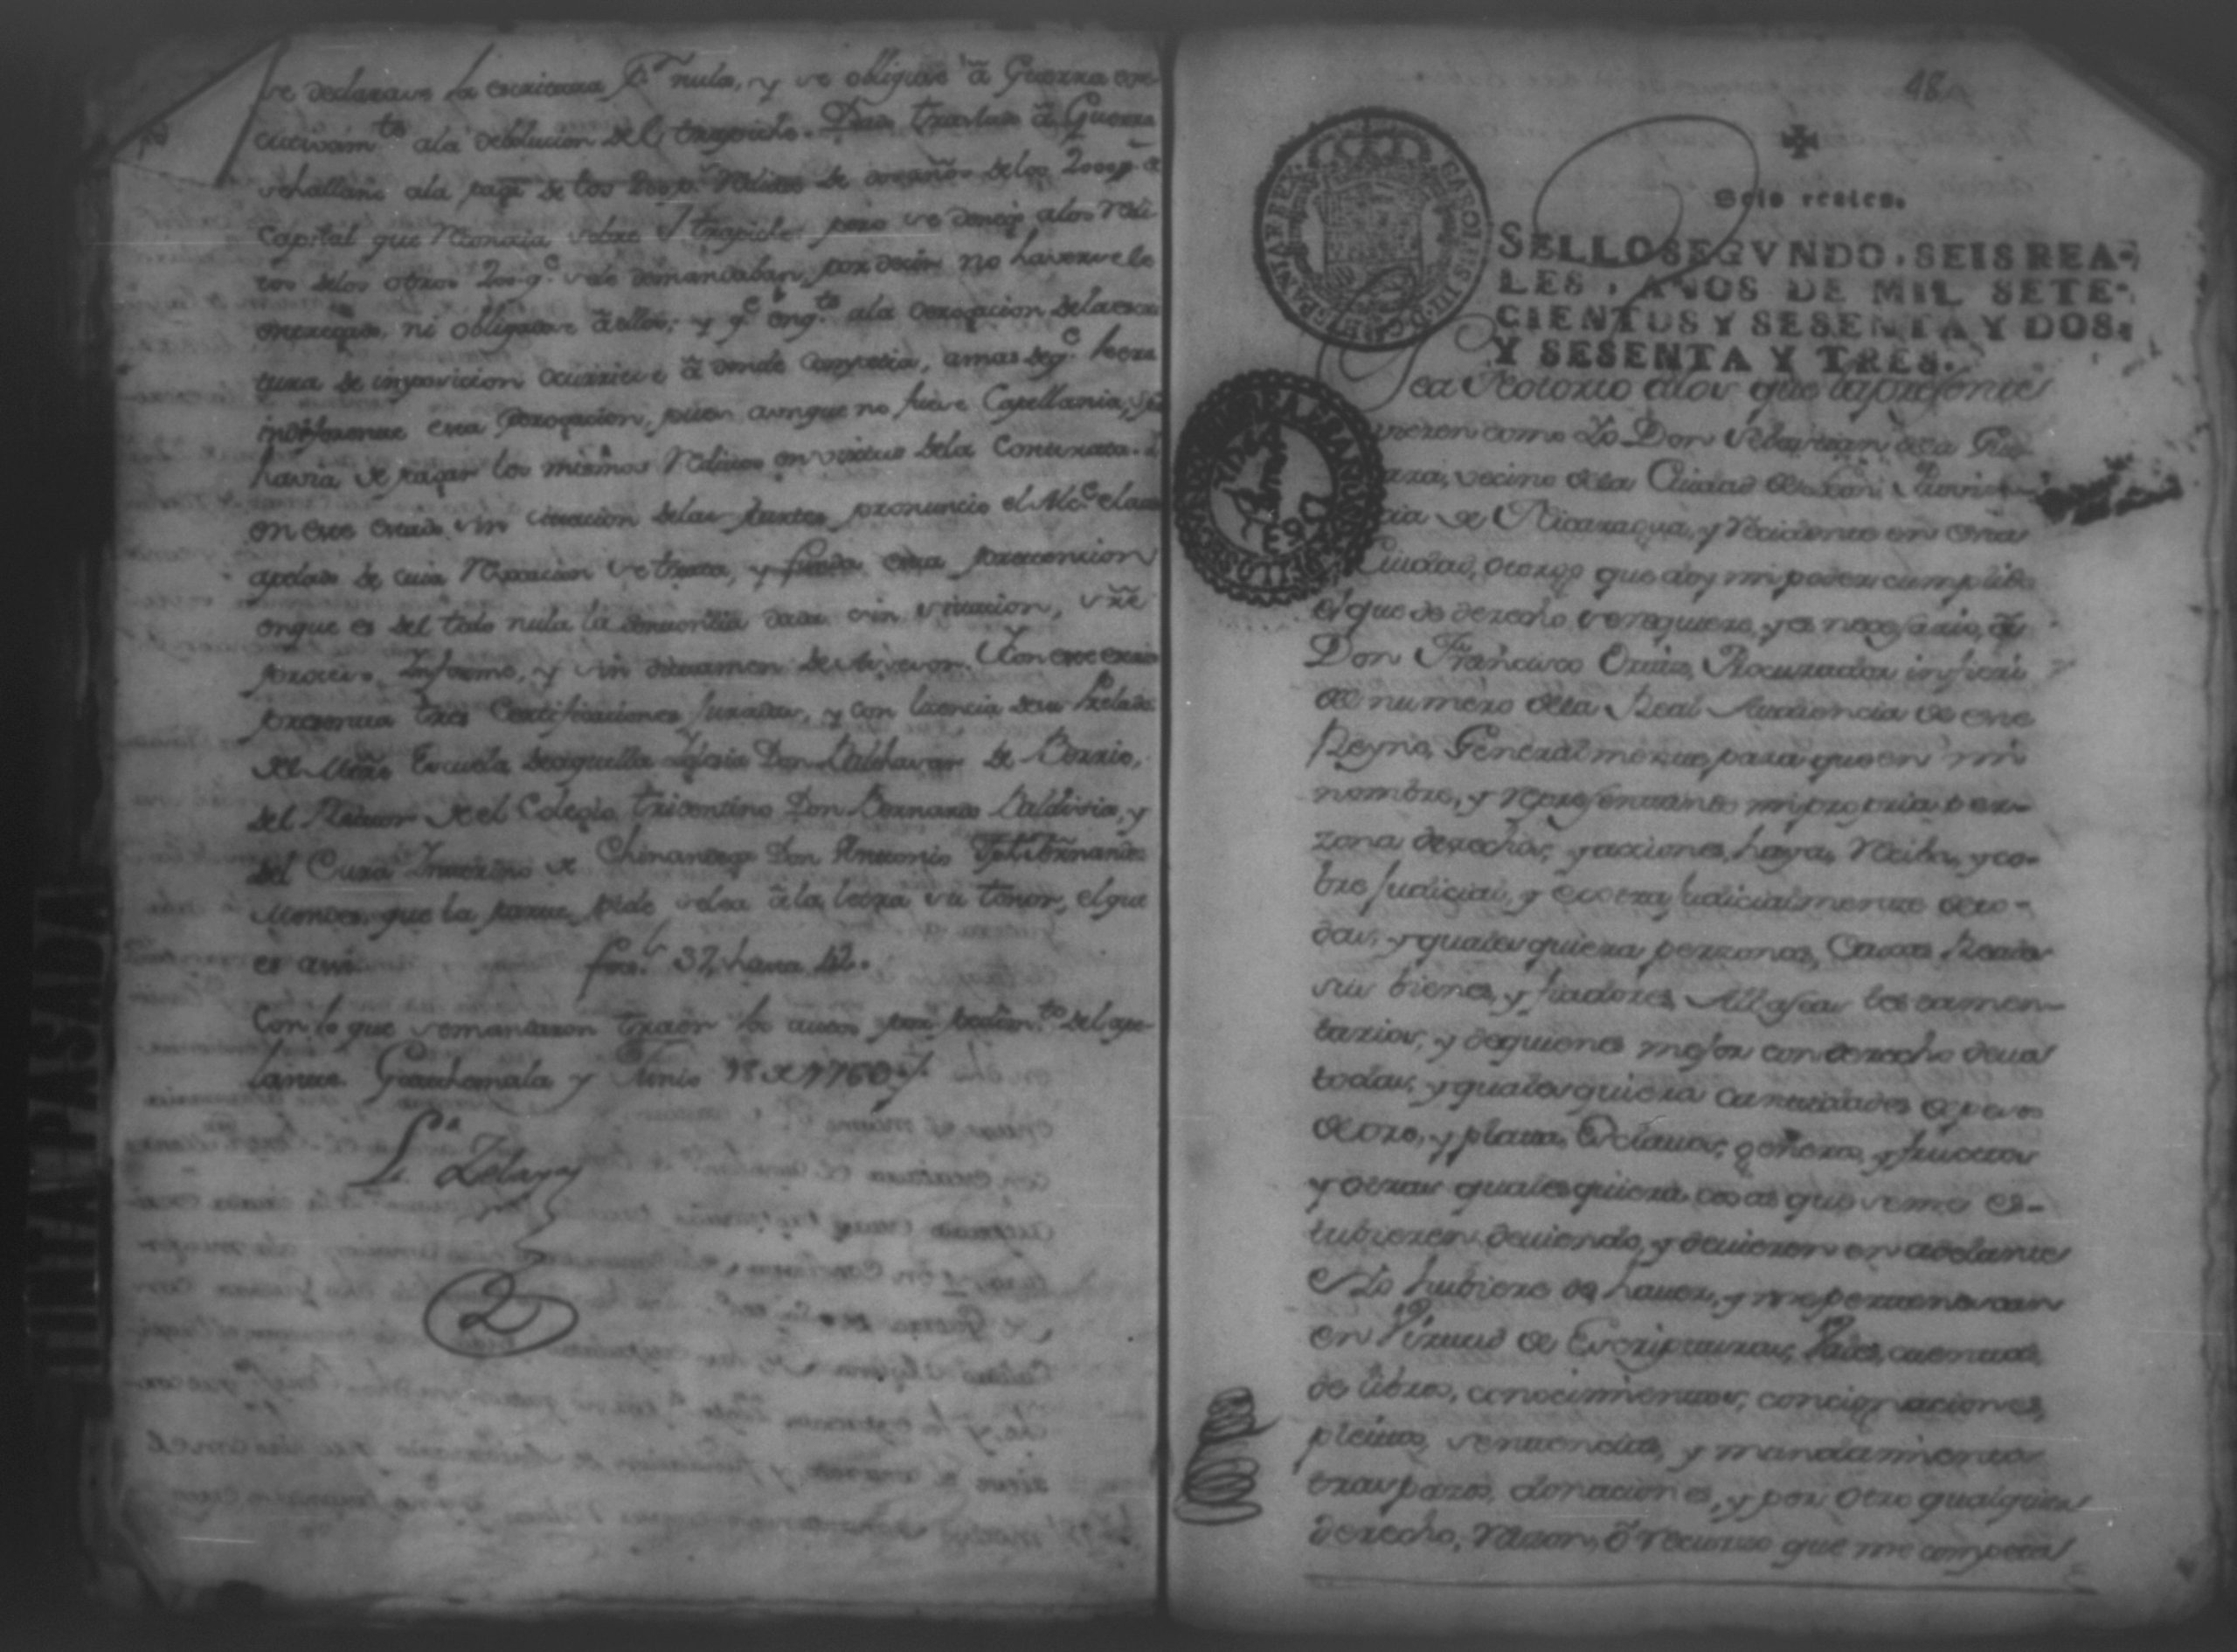 se declarase la escriptura pr. nula, y se obligase â Guerra exe-
cutivamte. ala debolucion del trapiche. Dase traslado â Guerra
se hallanó ala paga de los reditos de los 2000 ps. de
Capital que reconocia sobre el trapiche pero se denegó alos redi-
tos delos otros 200 qe. se le demandaban, por decir no haversele
entregado, ni obligadose â ellos, y qe. en qto. ala derogacion dela escri-
tura de imposicion ocurriese â donde competia, amas de qe. hera
indiferente esta derogacion, pues aunque no fuese Capellania,
havia de pagar los mismos reditos en virtud dela Contrata.
en este estado sin citacion delas partes pronunció el Alce. el auto
apelado de cuia reposicion se trata, y funda esta pretencion
en que es del todo nula la sentencia dada sin citacion,
proceso informe, y sin dictamen de Asesor. Con este escrito
presenta tres Certificaciones juradas, y con licencia de su Prelado
del Mtre. Escuela de aquella Iglesia Don Balthasar de Berrio,
del Rector de el Colegio tridentino Don Bernardo Baldivia, y
del Cura Interino de Chinandega Don Antonio
Montes, que la parte pide se lea â la letra su tenor, el que
es asi. fos. 37 hasta 42.
Con lo que se mandaron traer los autos por pedimto. del ape-
lante. Guathemala y Junio 18 de 1760
Zelaya
2
48
Seis reales.
SELLO SEGVNDO, SEIS REA-
LES, AÑOS DE MIL SETE-
CIENTOS Y SESENTA Y DOS,
Y SESENTA Y TRES.
Sea Notorio alos que la presente
vieren como Yo Don Sebastian dela Gue-
rra, vecino dela Ciudad de Leon Provin-
cia de Nicaragua, y recidente en esta
Ciudad, otorgo que doy mi poder cumplido
el que de derecho se requiere, y es necesario, â
Don Francisco Procurador
del numero dela Real Audiencia de este
Reyno, Generalmente para que en mi
nombre, y representando mi propria per-
zona derechos, y acciones, haya, reciba, y co-
bre judicial, y extra judicialmente de to-
das, y qualesquiera perzonas, Caxas Reales
sus bienes, y fiadores, Albaseas testamen-
tarios, y dequienes mejor con derecho deva
todas, y qualesquiera cantidades de pesos
de oro, y plata, Esclavos, generos, y frutos
y otras qualesquiera cosas que se me es-
tubieren deviendo, y devieren en adelante
e Yo hubiere de haver, y me pertenescan
en Virtud de Escripturas, Vales, cuentas
de libros, conocimientos, concignaciones,
pleitos, sentencias, y mandamientos
traspasos, donaciones, y por otro qualquier
derecho, razon, ô recurso que me competa